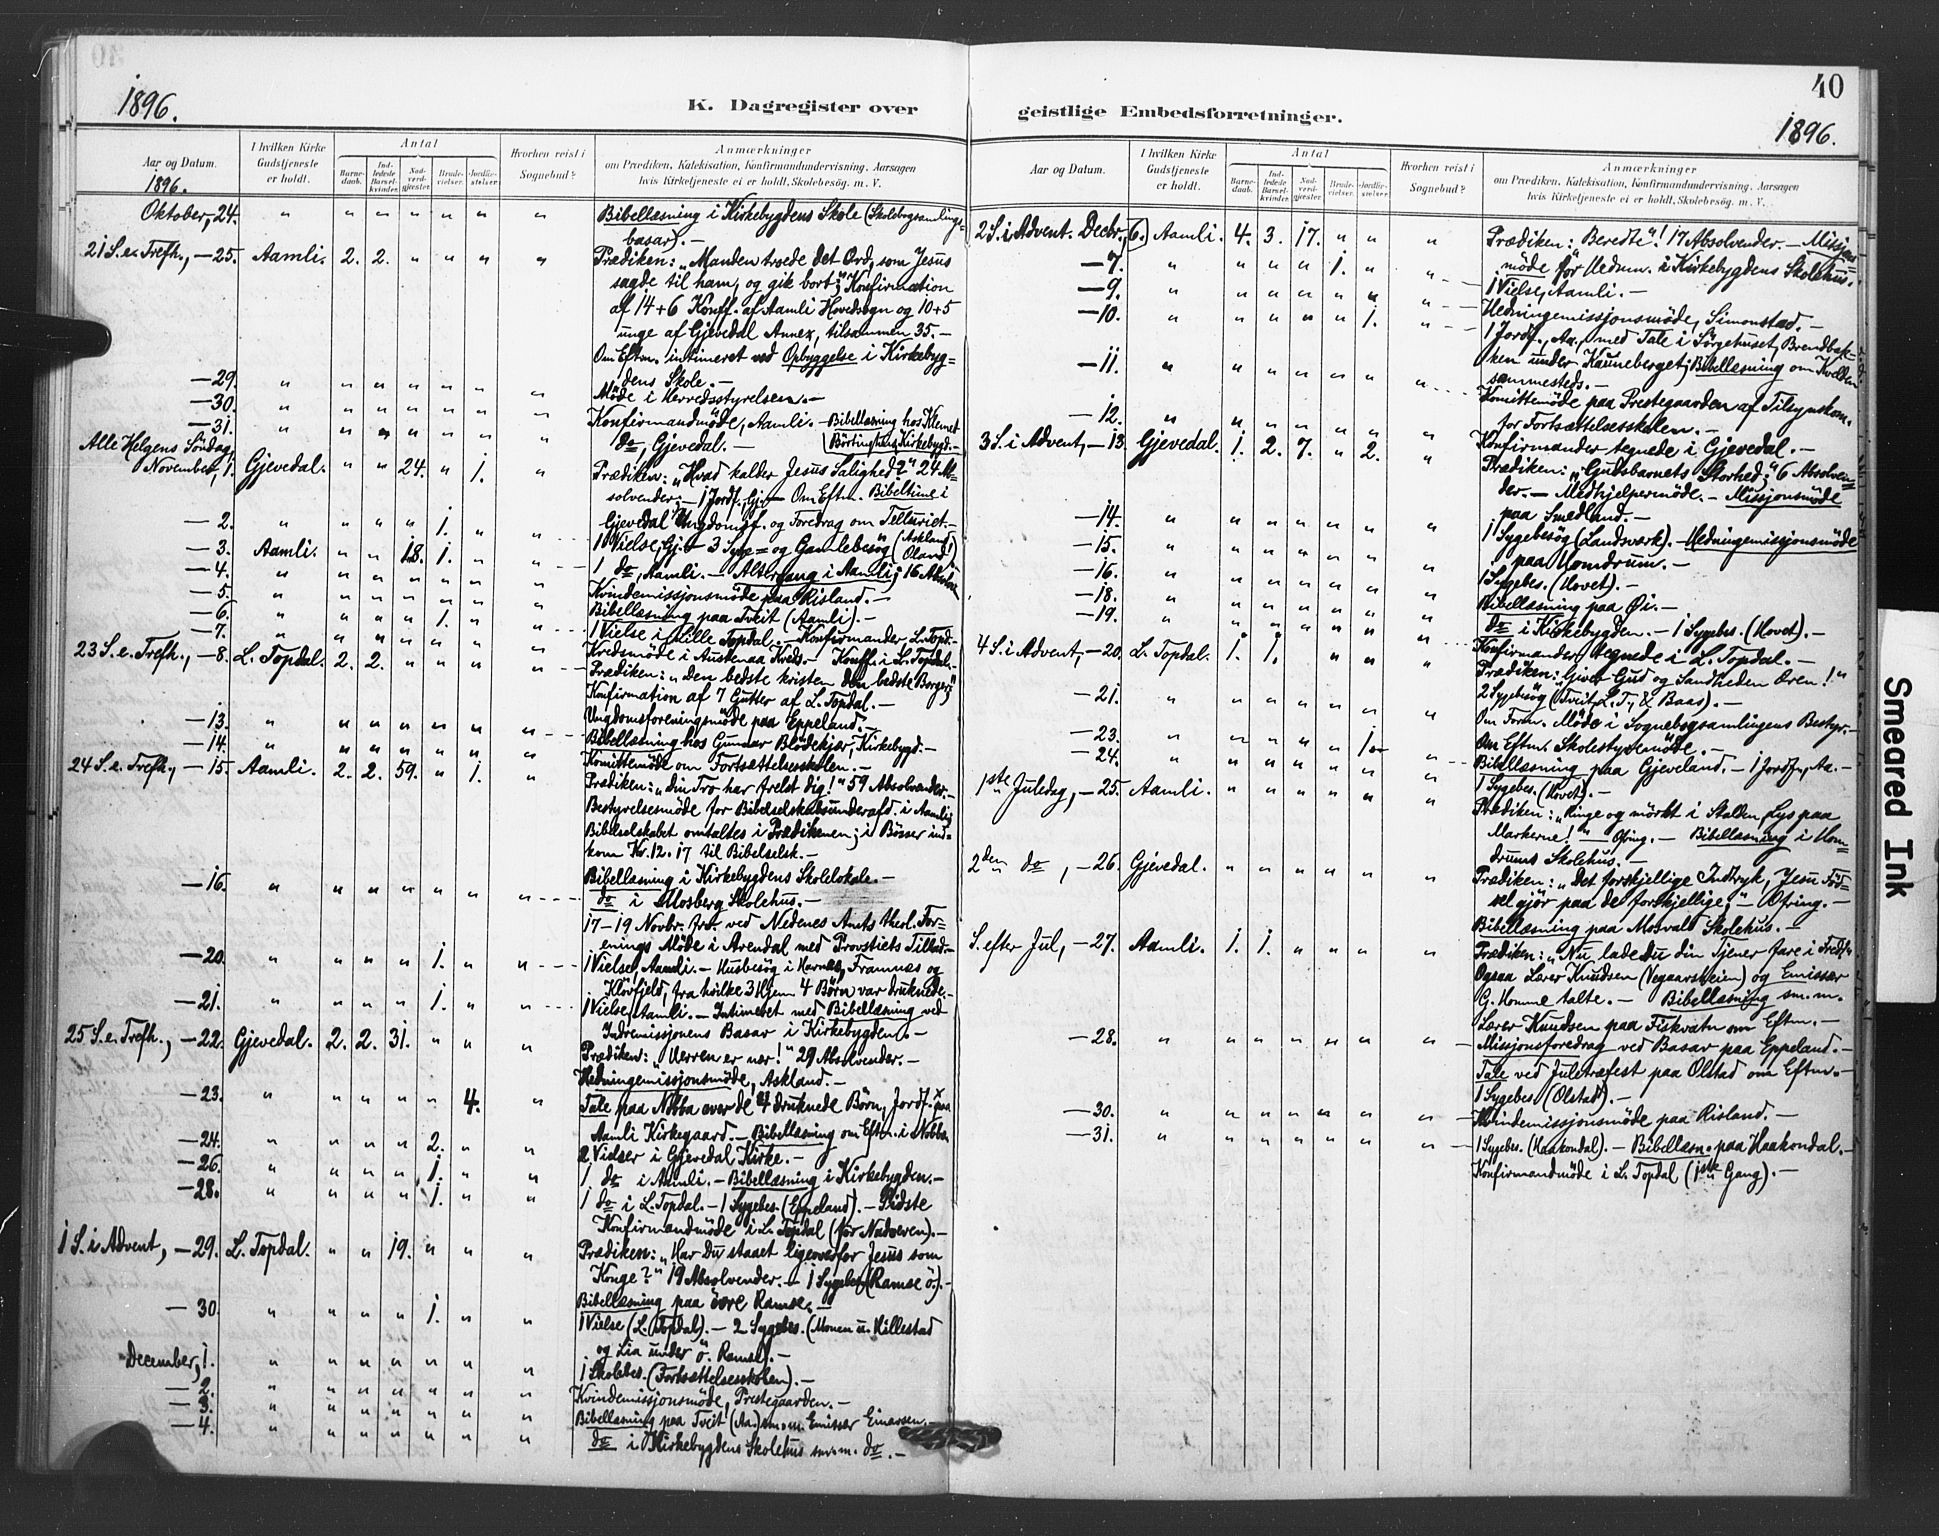 1896.
K. Dagregister over
Aar og Datum.
1896.
I hvilken Kirke Gudstjeneste er holdt.
Antal
Barnedaab.
Indledede Barselkvinder.
Nadverdgjester.
Brudevielser.
Jordfæstelser.
Hvorhen reist i Sognebud?
Anmærkninger
om Prædiken, Katekisation, Konfirmandundervisning, Aarsagen
hvis Kirketjeneste ei er holdt, Skolebesøg. m. V.
Oktober, 24. " " " " " " " Bibellæsning i Kirkebygdens Skole (Skolebogsamlings-
basar). —
21 S. e. Trefh., — 25. Aamli. 2. 2. " " " " Prædiken: "Manden troede det Ord, som Jesus
sagde til ham, og gik bort;" Konfirmation
af 14+6 Konff. af Aamli Hovedsogn og 10+5
unge af Gjevedal Annex, tilsammen 35. —
Om Eftm. intimeret ved Opbyggelse i Kirkebyg=
dens Skole. —
— 29. " " " " " " " Møde i Herredsstyrelsen. —
— 30. " " " " " " " Konfirmandmöde, Aamli. — Bibellæsning hos Klemet
— 31. " " " " " " " 1 do, Gjevedal. — Kirkebygd. —
Alle Helgens Söndag,
November, 1. Gjevedal. " " 24. " 1. " Prædiken: "Hvad kalder Jesus Salighed?" 24 Ab-
solvender. — 1 Jordf., Gj. — Om Eftm. Bibeltime i
Gjevedal Ungdomsf. og Foredrag om Telluriet. —
— 2. " " " " 1. " " 1 Vielse, Gj. — 3 Syge= og Gamlebesög (Askland
Öland!)
— 3. Aamli. " " 18. 1. " " 1 do, Aamli. — Altergang i Aamli; 16 Absolv.
— 4. " " " " " " " Kvindemissjonsmöde paa Risland. —
— 5. " " " " " " " Bibellæsning paa Tveit (Aamli). —
— 6. " " " " 1. " " 1 Vielse i Lille Topdal. — Konfirmander L. Topd. —
— 7. " " " " " " " Kredsmöde i Austenaa Kreds. — Konff. i L. Topdal. —
23 S. e. Trefh., — 8. L. Topdal. 2. 2. " " " " Prædiken: "Den bedste kristen den bedste Borger;"
Konfirmation af 7 Gutter af L. Topdal. —
Ungdomsforeningsmöde paa Eppeland. —
— 13. " " " " " " " Bibellæsning hos Gunnar Blödekjær, Kirkebygd. —
— 14. " " " " " " " Komittemöde om Fortsættelsesskolen. —
24 S. e. Trefh., — 15. Aamli. 2. 2. 59. " 1. " Prædiken: "Din Tro har frelst dig!" 59 Absolvender. —
Bestyrelsesmöde for Bibelselskabsunderafd. i Aamli;
Bibelselskabet omtaltes i Prædikenen; i Bösser ind=
kom Kr. 12.17 til Bibelselsk. —
Bibellæsning i Kirkebygdens Skolelokale. —
— 16. " " " " " " " do i Mosberg Skolehus. —
17—19 Novbr. fra. ved Nedenes Amts theol. For=
enings Möde i Arendal med Provstiets Tillad. —
— 20. " " " " 1. " " 1 Vielse, Aamli. — Husbesög i Harnæs, Framnæs og
Klövfjeld, fra hvilke 3 Hjem 4 Börn var druknede. —
— 21. " " " " 1. " " 1 Vielse, Aamli. — Intimeret med Bibellæsning ved
Indremissjonens Basar i Kirkebygden. —
25 S. e. Trefh., — 22. Gjevedal. 2. 2. 31. " " " Prædiken: "Herren er nær!" 29 Absolvender. —
Hedningemissjonsmöde, Askland. —
— 23. " " " " " 4. " Tale paa Nobba over de 4 druknede Börn, Jordf. paa
Aamli Kirkegaard. — Bibellæsning om Eftm. i Nobba.
— 24. " " " " 2. " " 2 Vielser i Gjevedal Kirke. —
— 26. " " " " 1. " " 1 do i Aamli. — Bibellæsning i Kirkebygden. —
— 28. " " " " 1. " " 1 do i L. Topdal. — 1 Sygebes. (Eppeland). — Sidste
Konfirmandmöde i L. Topdal (för Nadveren). —
1 S. i Advent, — 29. L. Topdal. " " 19. " " " Prædiken: "Har Du staaet ligeoverfor Jesus som
Konge?" 19 Absolvender. — 1 Sygebes. (Ramse ö.). —
Bibellæsning paa övre Ramse. —
— 30. " " " " 1. " " 1 Vielse (L. Topdal). — 2 Sygebes. (Monen u. Hillestad
og Lia under ö. Ramse). —
December, 1. " " " " " " " 1 Skolebes. (Fortsættelsesskolen). —
— 2. " " " " " " " Kvindemissjonsmöde, Prestegaarden. —
— 3. " " " " " " " Bibellæsning paa Tveit (Aa.) sm.m. Emissær Einarsen. —
— 4. " " " " " " " do i Kirkebygdens Skolehus sm.m. do. —
40
geistlige Embedsforretninger.
1896.
Aar og Datum.
I hvilken Kirke Gudstjeneste er holdt.
Antal
Barnedaab.
Indledede Barselkvinder.
Nadverdgjester.
Brudevielser.
Jordfæstelser.
Hvorhen reist i Sognebud?
Anmærkninger
om Prædiken, Katekisation, Konfirmandundervisning, Aarsagen
hvis Kirketjeneste ei er holdt, Skolebesøg. m. V.
2 S. i Advent. Decbr., 6.) Aamli. 4. 3. 17. " " " Prædiken: "Beredte"! 17 Absolvender. — Misjons=
möde for Hedm. i Kirkebygdens Skolehus. —
— 7. " " " " 1. " " 1 Vielse, Aamli. —
— 9. " " " " " " " Hedningemissjonsmöde, Simonstad. —
— 10. " " " " " 1. " 1 Jordf., Aa., med Tale i Sörgehuset, Brendbak-
ken under Kauneberget; Bibellæsning om Kvelden
sammesteds. —
— 11. " " " " " " " Komittemöde paa Prestegaarden af Tilsynskom.
for Fortsættelsesskolen. —
— 12. " " " " " " " Konfirmander tegnede i Gjevedal. —
3 S. i Advent, — 13. Gjevedal. 1. 2. 7. " 2. " Prædiken: "Gudsbarnets Storhed;" 6 Absolven=
der. — Medhjelpermöde. — Missjonsmöde
paa Smedland. —
— 14. " " " " " " " 1 Sygebesög (Landsværk). — Hedningemissjonsmöde
paa Homdrum. —
— 15. " " " " " " " 1 Sygebes. (Hovet). —
— 16. " " " " " " " Bibellæsning paa Öi. —
— 18. " " " " " " " do i Kirkebygden. — 1 Sygebes. (Hovet). —
— 19. " " " " " " " Konfirmander tegnede i L. Topdal. —
4 S. i Advent, — 20. L. Topdal. 1. 1. " " " Prædiken: "Giver Gud og Sandheden Æren!"
2 Sygebesög (Tveit, L. T., & Baas). —
— 21. " " " " " " " Om Form. Möde i Sognebogsamlingens Bestyr. —
Om Eftm. Skolestyremöde. —
— 23. " " " " " 1. " Bibellæsning paa Gjeveland. — 1 Jordf., Aa. —
— 24. " " " " " " " 1 Sygebes. (Hovet). —
1ste Juledag, — 25. Aamli. " " " " " " Prædiken: "Ringe og mörkt i Stalden, Lys paa
Markerne!" — Ofring. — Bibellæsning i Hom=
drums Skolehus. —
2den do, — 26. Gjevedal. " " " " " " Prædiken: "Det forskjellige Indtryk, Jesu Föd=
sel gjör paa de forskjellige;" — Ofring. —
Bibellæsning paa Morvalds Skolehus. —
S. efter Jul, — 27. Aamli. 1. 1. " " " " Prædiken: "Nu lade du din Tjener fare i Fred!"
Ogsaa Lærer Knudsen (Vegaarsheien) og Emissær
G. Homme talte. — Bibellæsning sm. m.
Lærer Knudsen paa Fiskvatn om Eftm. —
— 28. " " " " " " " Missjonsforedrag ved Basar paa Eppeland. —
Tale ved Juletræfest paa Olstad om Eftm. —
1 Sygebes. (Olstad). —
— 30. " " " " " " " Kvindemissjonsmöde paa Risland. —
— 31. " " " " " " " 1 Sygebes. (Haakondal). — Bibellæsn. paa Haakondal. —
Konfirmandmöde i L. Topdal (1ste Gang). —
Smeared Ink